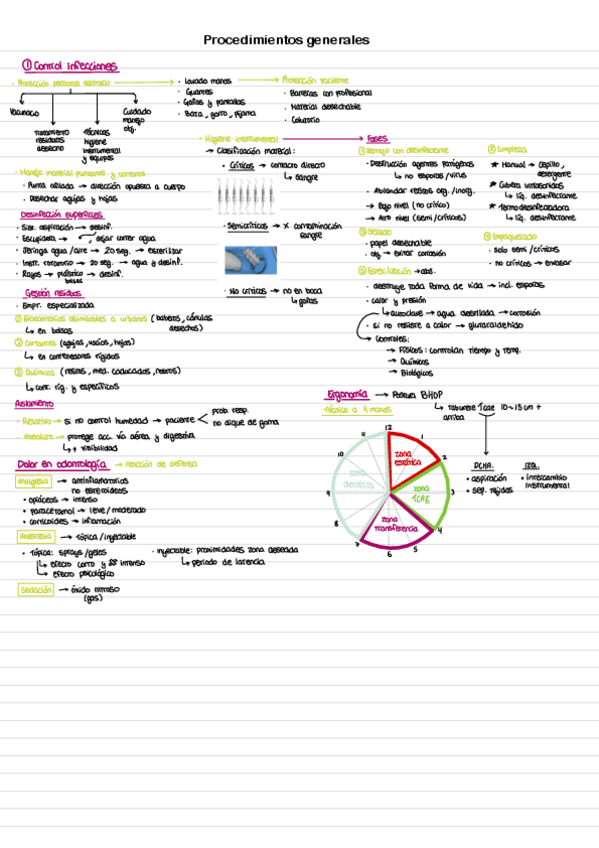 Procedimientos generales
① Control infecciones
· Protección personal sanitario
Vacunación
Tratamiento
residuos
desecho
Técnicas
higiene
instrumental
y equipos
Cuidado
manejo
obj.
· Lavado manos
· Guantes
· Gafas y pantallas
· Bata, gorro, pijama
Protección paciente
· Barreras con profesional
· Material desechable
· Colutorio
· Manejo material punzante y cortante
· Punta afilada → dirección opuesta a cuerpo
· Desechar agujas y hojas
Desinfección superficies
· Sist. aspiración → desinf.
· Escupidera → , dejar correr agua
· Jeringa agua/aire → 20 seg. → esterilizar
· Instr. rotatorio → 20 seg. → agua y desinf.
· Rayos → plástico → desinf.
bolsas
Gestión residuos
· Empr. especializada
① Biosanitarios asimilables a urbanos (baberos, cánulas
desechos)
↳ en bolsas
② Cortantes (agujas, vacíos, hojas)
↳ en contenedores rígidos
③ Químicos (resinas, med. caducados, retros)
↳ cont. rig. y específicos
· Higiene instrumental
→ Clasificación material:
· Críticos → contacto directo
↳ sangre
· Semicríticos → x contaminación
sangre
· No críticos → no en boca
↳ gafas
Fases
① Remojo con desinfectante
· Destrucción agentes patógenos
↳ no esporas/virus
· Ablandar restos org./inorg.
→ Bajo nivel (no crítico)
→ Alto nivel (semi/críticos)
③ Secado
· papel desechable
· obj → evitar corrosión
⑤ Esterilización → abs.
· destruye toda forma de vida → incl. esporas
· calor y presión
↳ autoclave → agua destilada → corrosión
· si no resiste a calor → glutaraldehído
↳ Controles:
→ Físicos: controlan tiempo y temp.
→ Químicos
→ Biológicos
② Limpieza
★ Manual → cepillo,
detergente
★ Cubeta ultrasonidos
↳ líq. desinfectante
★ Termodesinfectadora
↳ líq. desinfectante
④ Empaquetado
· solo semi/críticos
· no críticos → envasar
Aislamiento
· Relativo → si no control humedad → paciente
prob. resp.
no dique de goma
· Absoluto → protege acc. vía aérea y digestiva
↳ + visibilidad
Dolor en odontología → reacción de defensa
Analgesia → antiinflamatorios
no esteroideos
· opiáceos → intenso
· paracetamol → leve/moderado
· corticoides → inflamación
Anestesia → tópica/inyectable
· Tópica: sprays/geles
↳ efecto corto y ss intenso
↳ efecto psicológico
· Inyectable: proximidades zona deseada
↳ periodo de latencia
Sedación → óxido nitroso
(gas)
Ergonomía → Postura BHOP
Técnica a 4 manos
↳ taburete TCAE 10-15 cm +
arriba
DCHA.
· aspiración
· sep. tejidos
IZQ.
· intercambio
instrumental
12
1
2
3
4
5
6
7
8
9
10
11
zona
estática
zona
dentista
zona
TCAE
zona
transferencia